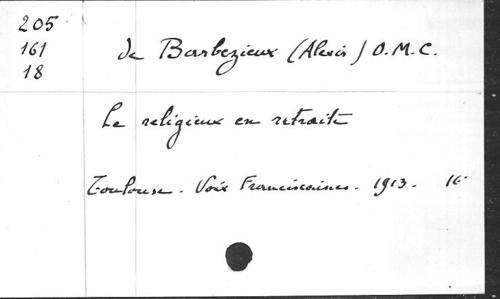 205
161
18
de Barbezieux (Alexis) O.M.C.
Le religieux en retraite
Toulouse. Voix Franciscaines. 1913. 16